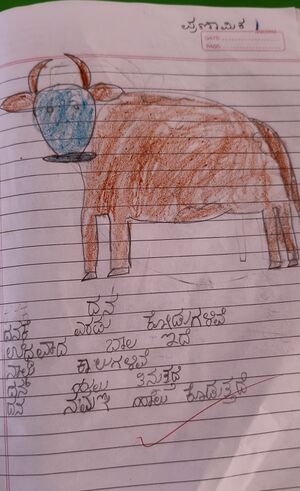 ಪ್ರಣಾಮಿಕ
DATE
PAGE
ದನ
ದನಕೆ ಎರಡು ಕೋಡುಗಳಿವೆ
ಉದ್ದವಾದ ಬಾಲ ಇದೆ
ನಾಲ್ಕು ಕಾಲುಗಳಿವೆ
ದನ ಹುಲ್ಲು ತಿನುತ್ತದೆ
ದನ ನಮಗೆ ಹಾಲು ಕೊಡುತ್ತದೆ